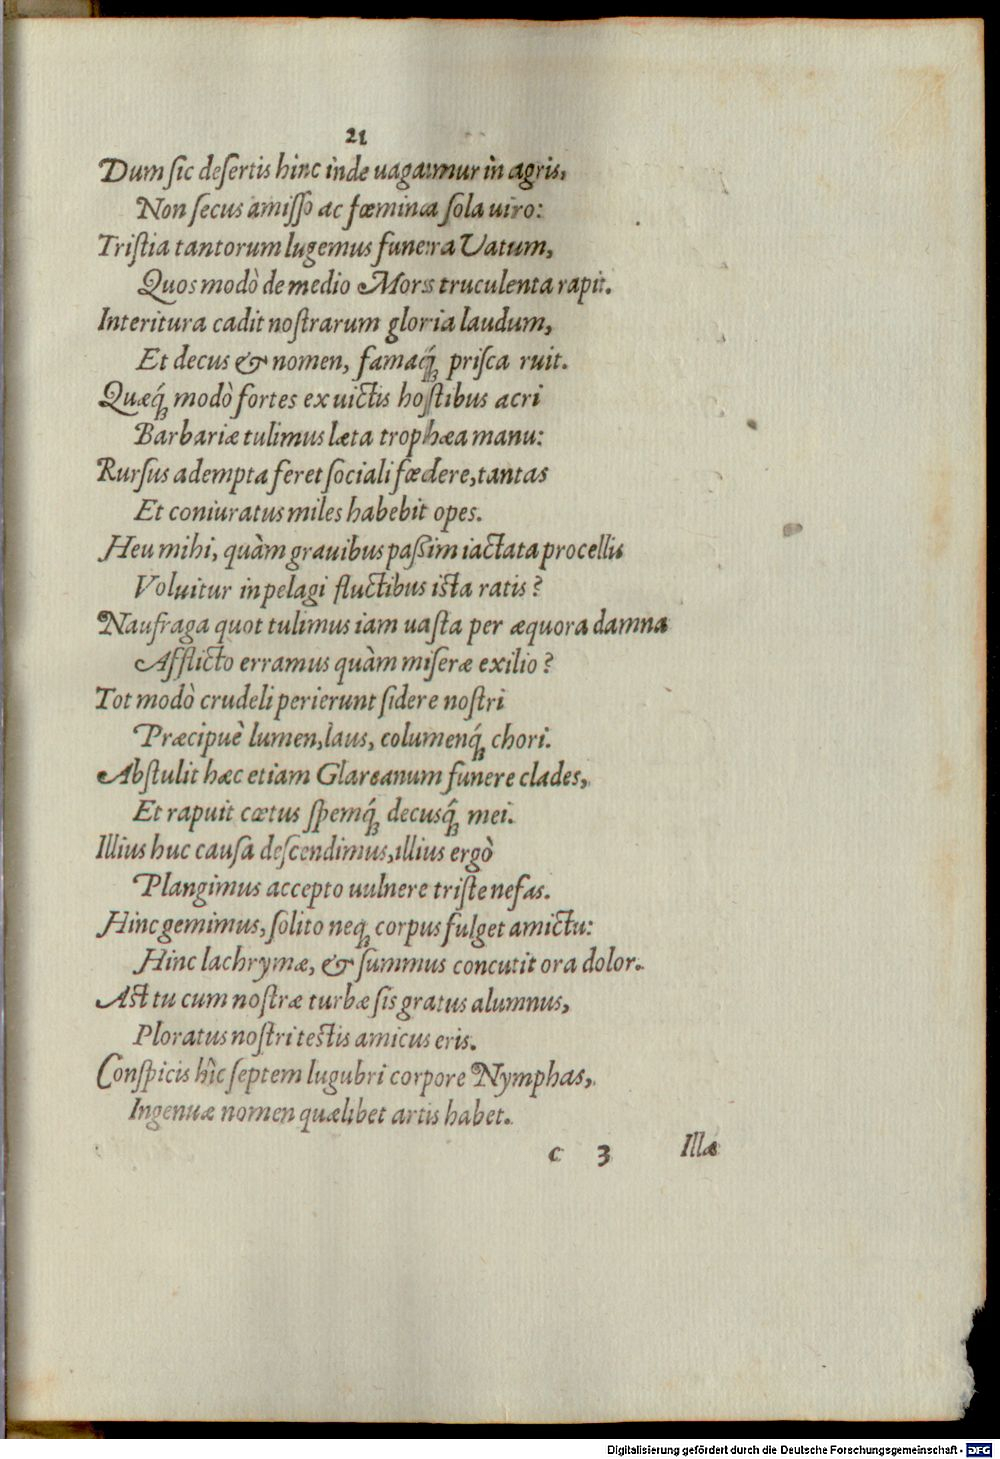 21
Dum sic desertis hinc ìnde uagamur ìn agris,
Non secus amisso ac fœminea sola uiro:
Tristia tantorum lugemus funera Vatum,
Quos modò de medio Mors truculenta rapit.
Interitura cadit nostrarum gloria laudum,
Et decus & nomen, famaq́; prisca ruit.
Quæq́; modò fortes ex uictis hostibus acri
Barbariæ tulimus læta trophæa manu:
Rursus adempta feret sociali fœdere, tantas
Et coniuratus miles habebit opes.
Heu mihi, quàm grauibus paßim iactata procellis
Voluitur in pelagi fluctibus ista ratis?
Naufraga quot tulimus iam uasta per æquora damna
Afflicto erramus quàm miseræ exilio?
Tot modò crudeli perierunt sidere nostri
Præcipuè lumen, laus, columenq́; chori.
Abstulit hæc etiam Glareanum funere clades,
Et rapuit cœtus spemq́; decusq́; mei.
Illius huc causa descendimus, illius ergò
Plangimus accepto uulnere triste nefas.
Hinc gemimus, solito neq; corpus fulget amictu:
Hinc lachrymæ, & summus concutit ora dolor.
Ast tu cum nostræ turbæ sis gratus alumnus,
Ploratus nostri testis amicus eris.
Conspicis hîc septem lugubri corpore Nymphas,
Ingenuæ nomen quælibet artis habet.
c 3 Illæ
Digitalisierung gefördert durch die Deutsche Forschungsgemeinschaft - DFG